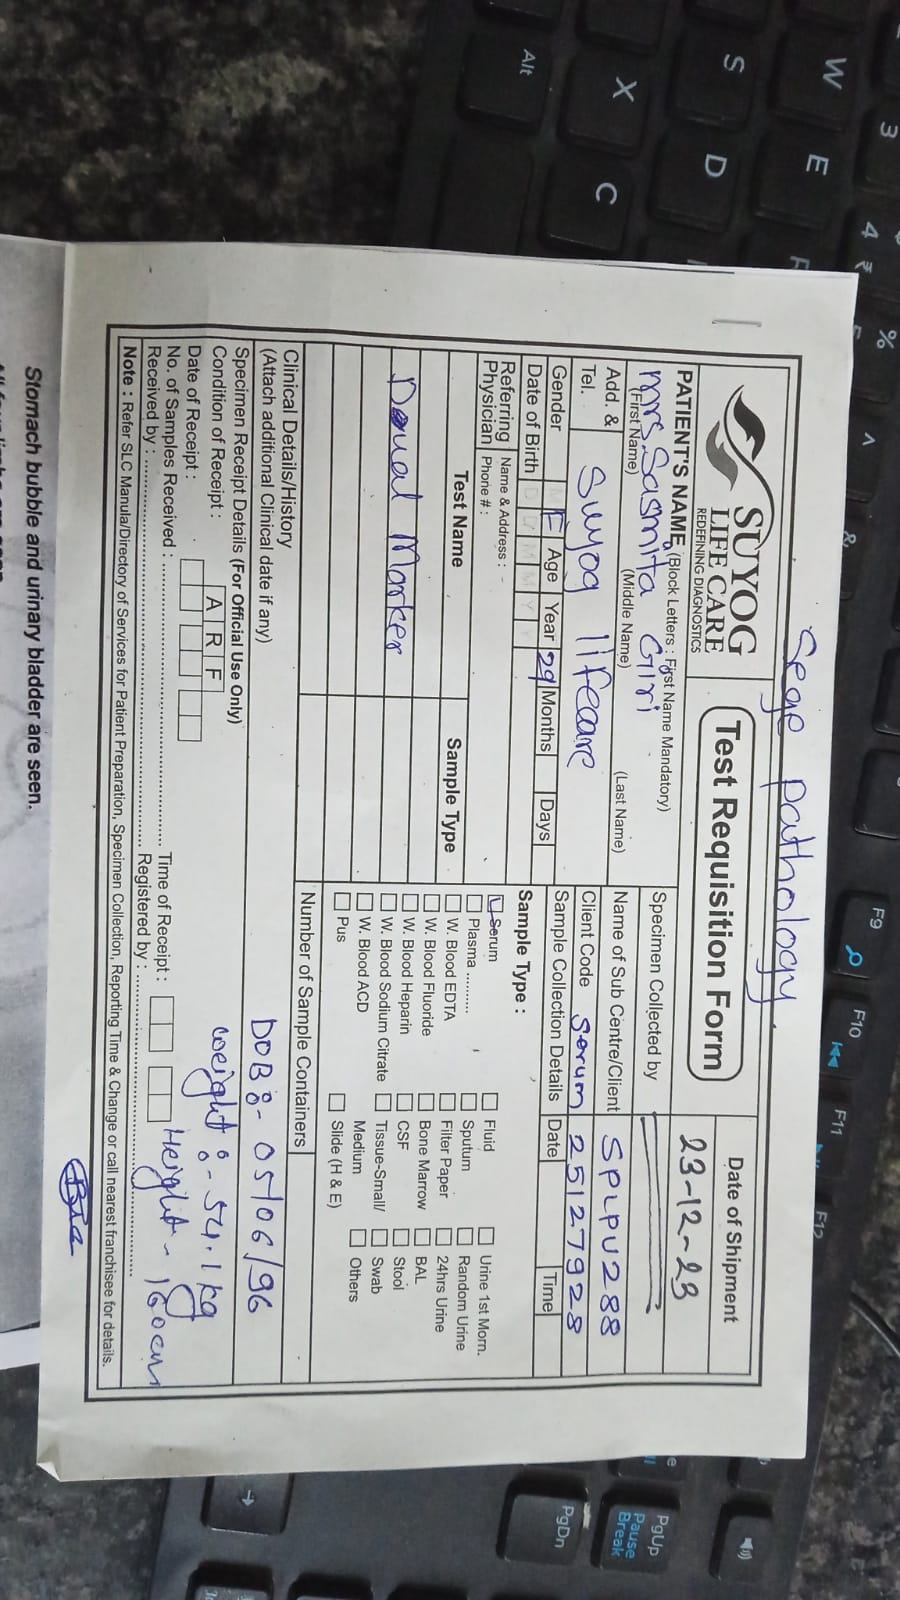 Sege pathology
SUYOG
LIFE CARE
REDEFINING DIAGNOSTICS
Test Requisition Form
Date of Shipment
23-12-23
PATIENT'S NAME (Block Letters : First Name Mandatory)
Mrs. Sasmita Giri
(First Name) (Middle Name) (Last Name)
Specimen Collected by
Add. & Tel. Suyog lifecare
Name of Sub Centre/Client SPLPU288
Client Code Serum 25127928
Gender M F Age Year 29 Months Days
Sample Collection Details Date Time
Date of Birth D D M M Y Y
Referring Physician
Name & Address :
Phone # :
Test Name
Sample Type
Doual Marker
Sample Type :
Serum
Plasma ...........
W. Blood EDTA
W. Blood Fluoride
W. Blood Heparin
W. Blood Sodium Citrate
W. Blood ACD
Pus
Fluid
Sputum
Filter Paper
Bone Marrow
CSF
Tissue-Small/
Medium
Slide (H & E)
Urine 1st Morn.
Random Urine
24hrs Urine
BAL
Stool
Swab
Others
Number of Sample Containers
Clinical Details/History
(Attach additional Clinical date if any)
DOB :- 05/06/96
Specimen Receipt Details (For Official Use Only)
weight :- 54.1kg
Condition of Receipt : A R F
Height - 160cm
Date of Receipt :
Time of Receipt :
No. of Samples Received :
Received by :
Registered by :
Note : Refer SLC Manula/Directory of Services for Patient Preparation, Specimen Collection, Reporting Time & Change or call nearest franchisee for details.
Stomach bubble and urinary bladder are seen.
W
3
S
E
4
₹
%
Alt
X
D
C
F9
F10
F11
F12
PgUp
Pause
Break
PgDn